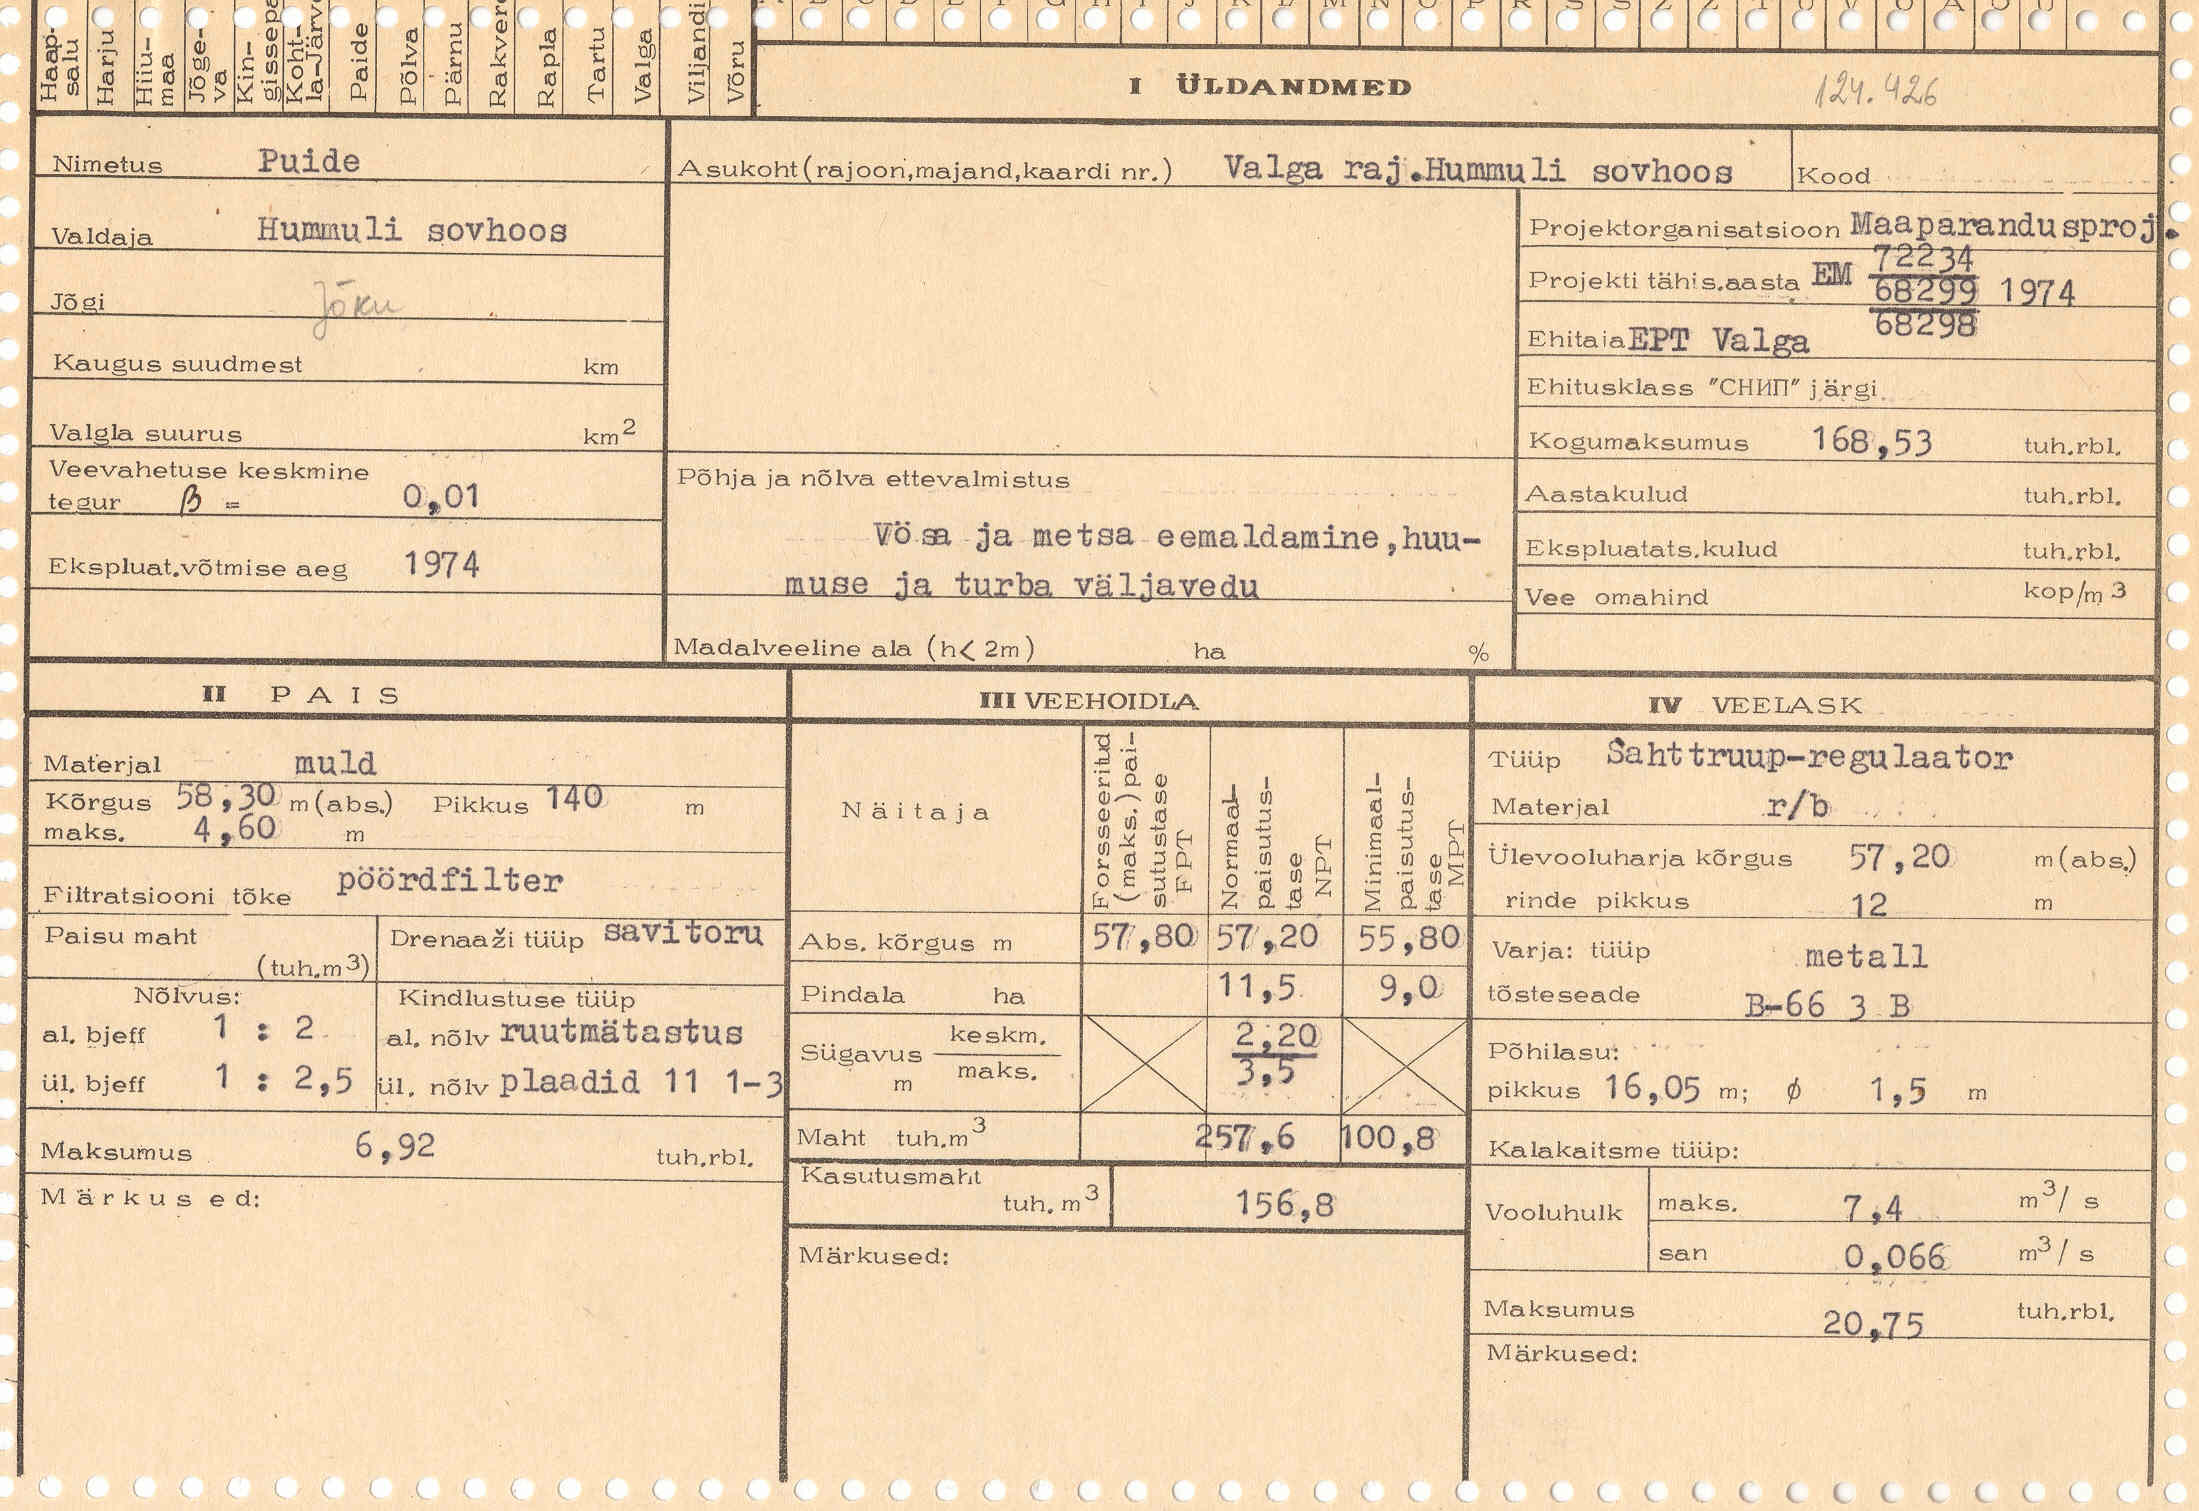 Haap-salu Harju Hiiu-maa Jõge-va Kin-gissepa Koht-la-Järve Paide Põlva Pärnu Rakvere Rapla Tartu Valga Viljandi Võru
I ÜLDANDMED 124.426
Nimetus Puide
Asukoht (rajoon,majand,kaardi nr.) Valga raj.Hummuli sovhoos Kood
Valdaja Hummuli sovhoos
Projektorganisatsioon Maaparandusproj.
Jõgi Jõku
Projekti tähis.aasta EM 72234
68299 1974
68298
Ehitaja EPT Valga
Kaugus suudmest km
Ehitusklass "СНИП" järgi
Valgla suurus km2
Kogumaksumus 168,53 tuh.rbl.
Veevahetuse keskmine
tegur β = 0,01
Põhja ja nõlva ettevalmistus
Võsa ja metsa eemaldamine,huu-
muse ja turba väljavedu
Aastakulud tuh.rbl.
Ekspluat.võtmise aeg 1974
Ekspluatats.kulud tuh.rbl.
Vee omahind kop/m3
Madalveeline ala (h< 2m) ha %
II PAIS
Materjal muld
Kõrgus 58,30 m (abs.) Pikkus 140 m
maks. 4,60 m
Filtratsiooni tõke pöördfilter
Paisu maht
(tuh.m3)
Drenaaži tüüp savitoru
Nõlvus:
al. bjeff 1 : 2
ül. bjeff 1 : 2,5
Kindlustuse tüüp
al. nõlv ruutmätastus
ül. nõlv plaadid 11 1-3
Maksumus 6,92 tuh.rbl.
Märkused:
III VEEHOIDLA
Näitaja
Forsseeritud
(maks.) pai-
sutustase
FPT
Normaal-
paisutus-
tase
NPT
Minimaal-
paisutus-
tase
MPT
Abs. kõrgus m 57,80 57,20 55,80
Pindala ha 11,5 9,0
Sügavus keskm. 2,20
m maks. 3,5
Maht tuh.m3 257,6 100,8
Kasutusmaht
tuh. m3 156,8
Märkused:
IV VEELASK
Tüüp Šahttruup-regulaator
Materjal r/b
Ülevooluharja kõrgus 57,20 m (abs.)
rinde pikkus 12 m
Varja: tüüp metall
tõsteseade B-66 3 B
Põhilasu:
pikkus 16,05 m; ϕ 1,5 m
Kalakaitsme tüüp:
Vooluhulk maks. 7,4 m3/ s
san 0,066 m3/ s
Maksumus 20,75 tuh.rbl.
Märkused: